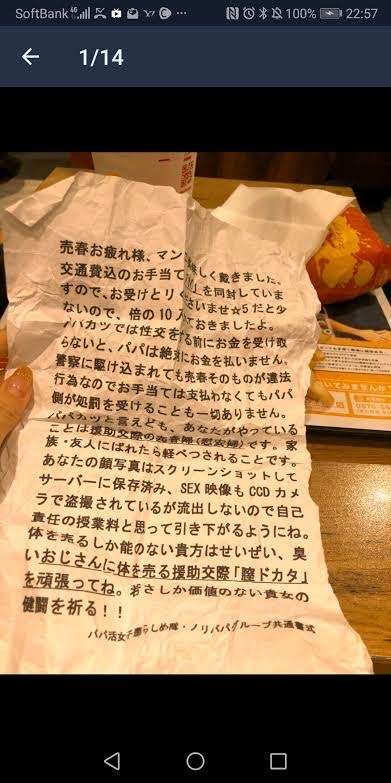 SoftBank 100% 22:57
1/14
売春お疲れ様、マン しく戴きました、
交通費込のお手当て 』を同封していま
すので、お受けとり くださいませ☆5だと少
ないので、倍の10 ておきましたよ。
パパカツでは性交を る前にお金を受け取
らないと、パパは絶対 にお金を払いません。
警察に駆け込まれても売春そのものが違法
行為なのでお手当ては支払わなくてもパパ
側が処罰を受けることも一切ありません。
パパカツと言えども、あなたがやっている
ことは援助交際の売春婦(慰安婦)です。家
族・友人にばれたら軽べつされることです。
あなたの顔写真はスクリーンショットして
サーバーに保存済み、SEX映像もCCDカメ
ラで盗撮されているが流出しないので自己
責任の授業料と思って引き下がるようにね。
体を売るしか能のない貴方はせいぜい、臭
いおじさんに体を売る援助交際「膣ドカタ」
を頑張ってね。若さしか価値のない貴女の
健闘を祈る!!
パパ活女子 らしめ隊・ノリパパグループ共通書式